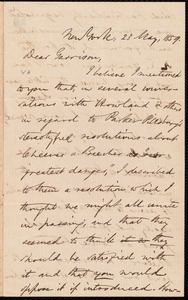 New York, 23 May, 1859.
Dear Garrison,
I believe I mentioned
to you that, in several conver-
sations with Howland & others
in regard to Parker Pillsbury's
resolutions about
Cheever & Beecher
greatest danger, I described
to them a resolution which I
thought we might all unite
in passing, and that they
seemed to think they
would be satisfied with
it and that you would
oppose it if introduced. How-